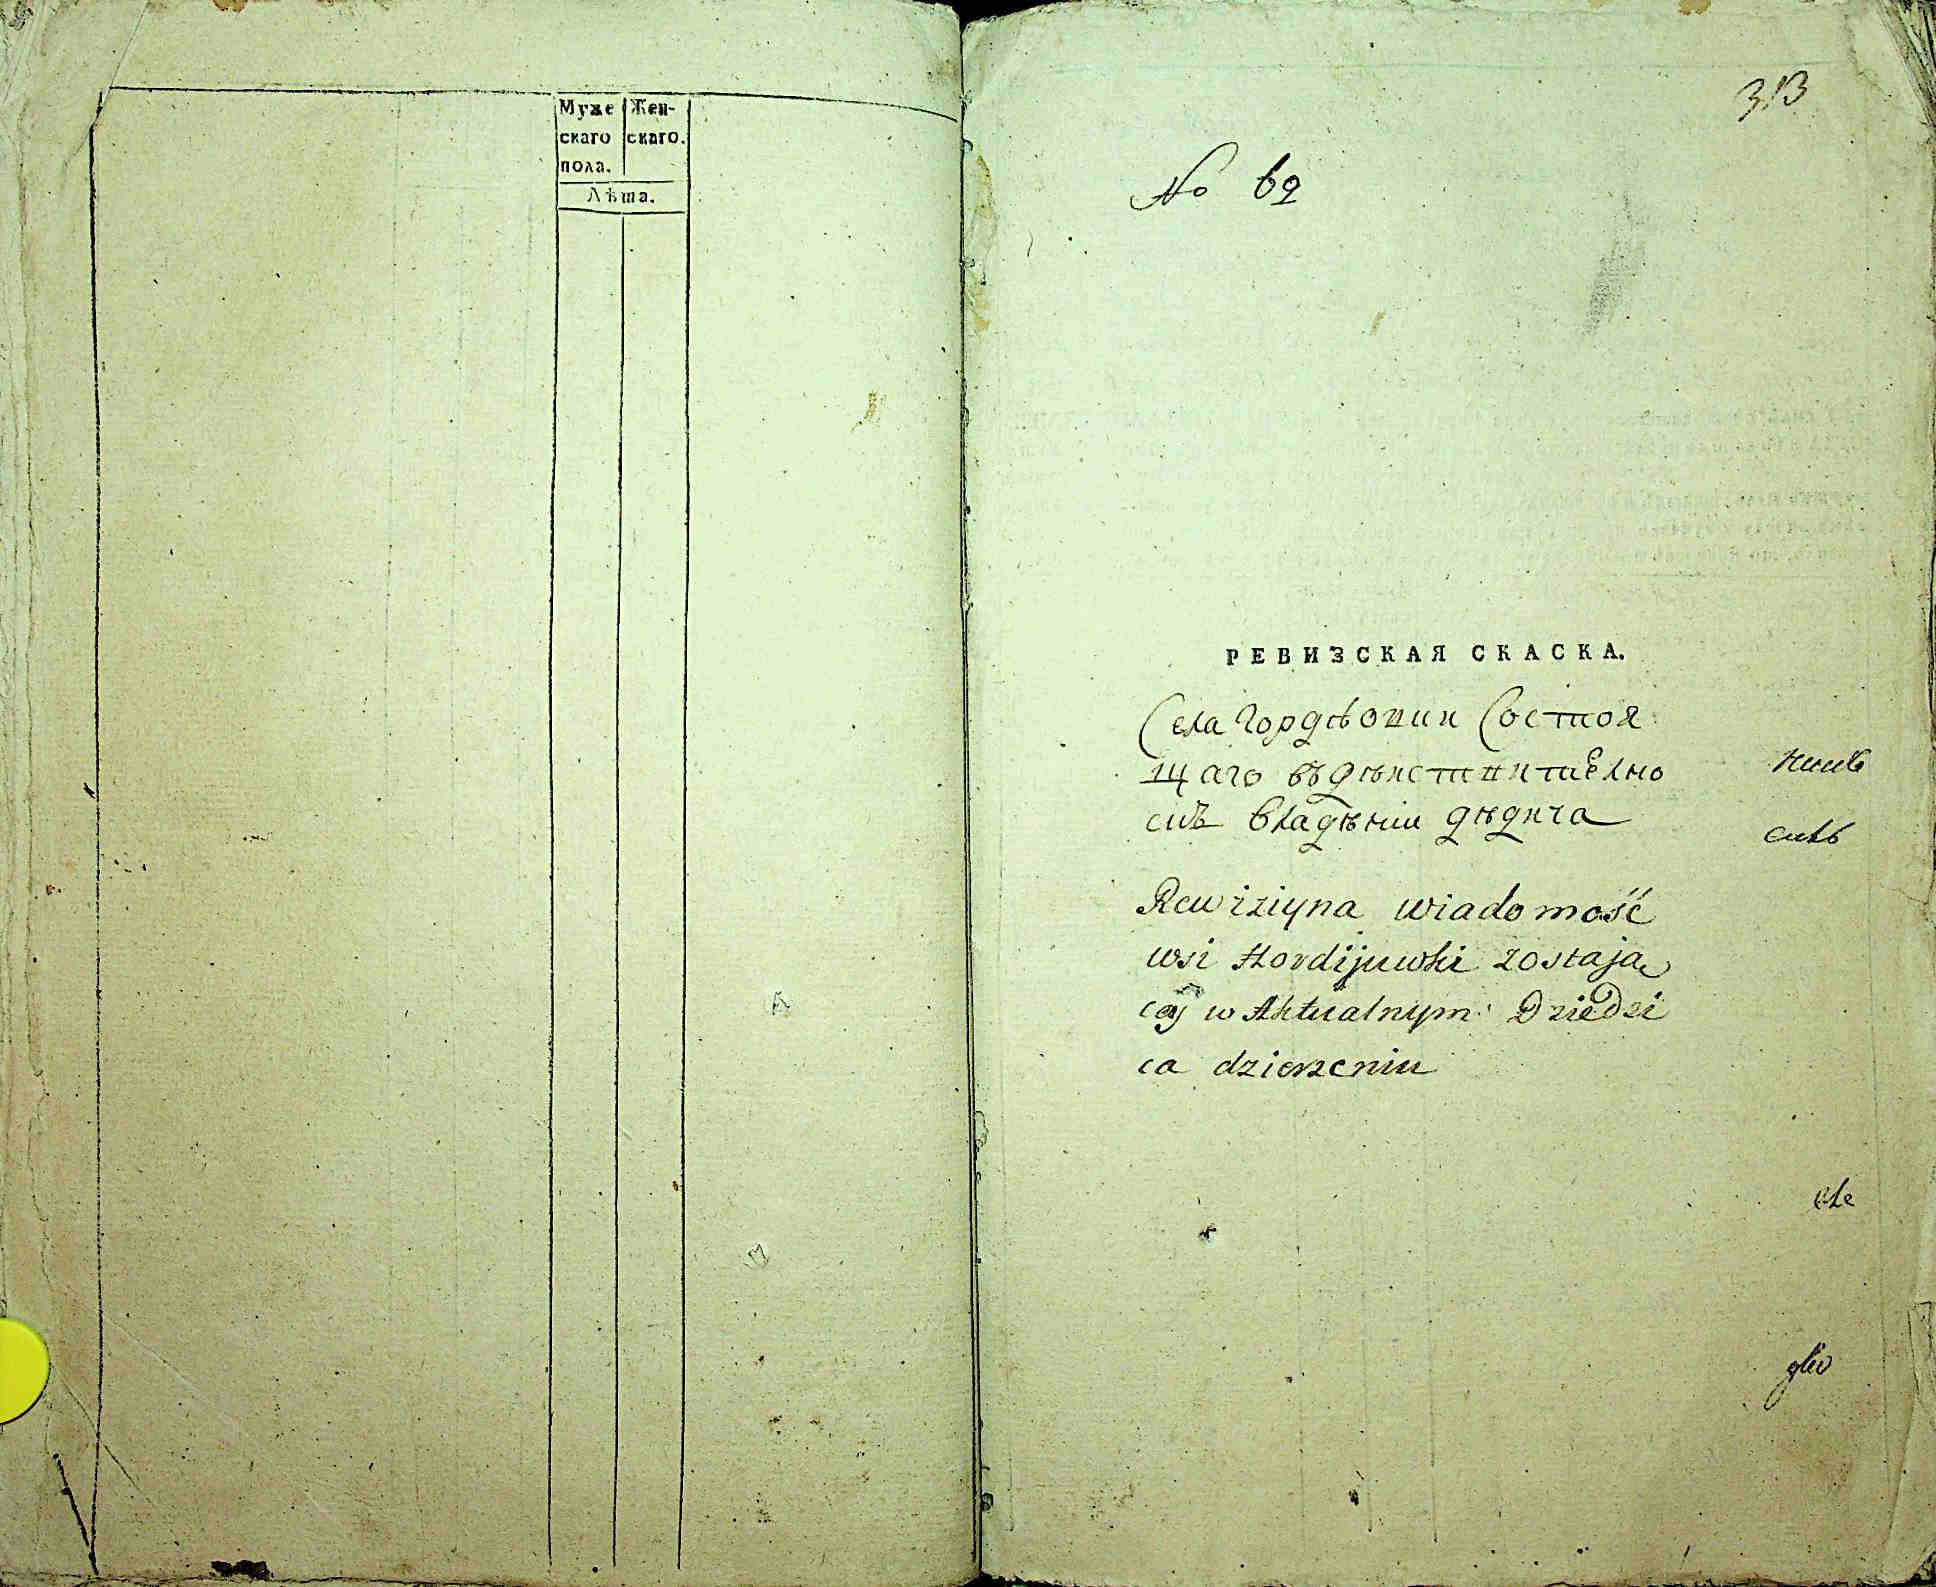 Муже Жен-
скаго скаго.
пола.
Лѣта.
313
No 62
РЕВИЗСКАЯ СКАСКА.
Села Гордѣовки Состоя
щаго въ дѣиствително
владѣнии дѣдича
Rewiziyna wiadomość
wsi Hordijuwki zostaja
cey w Aktualnym Dziedzi
ca dzierzeniu